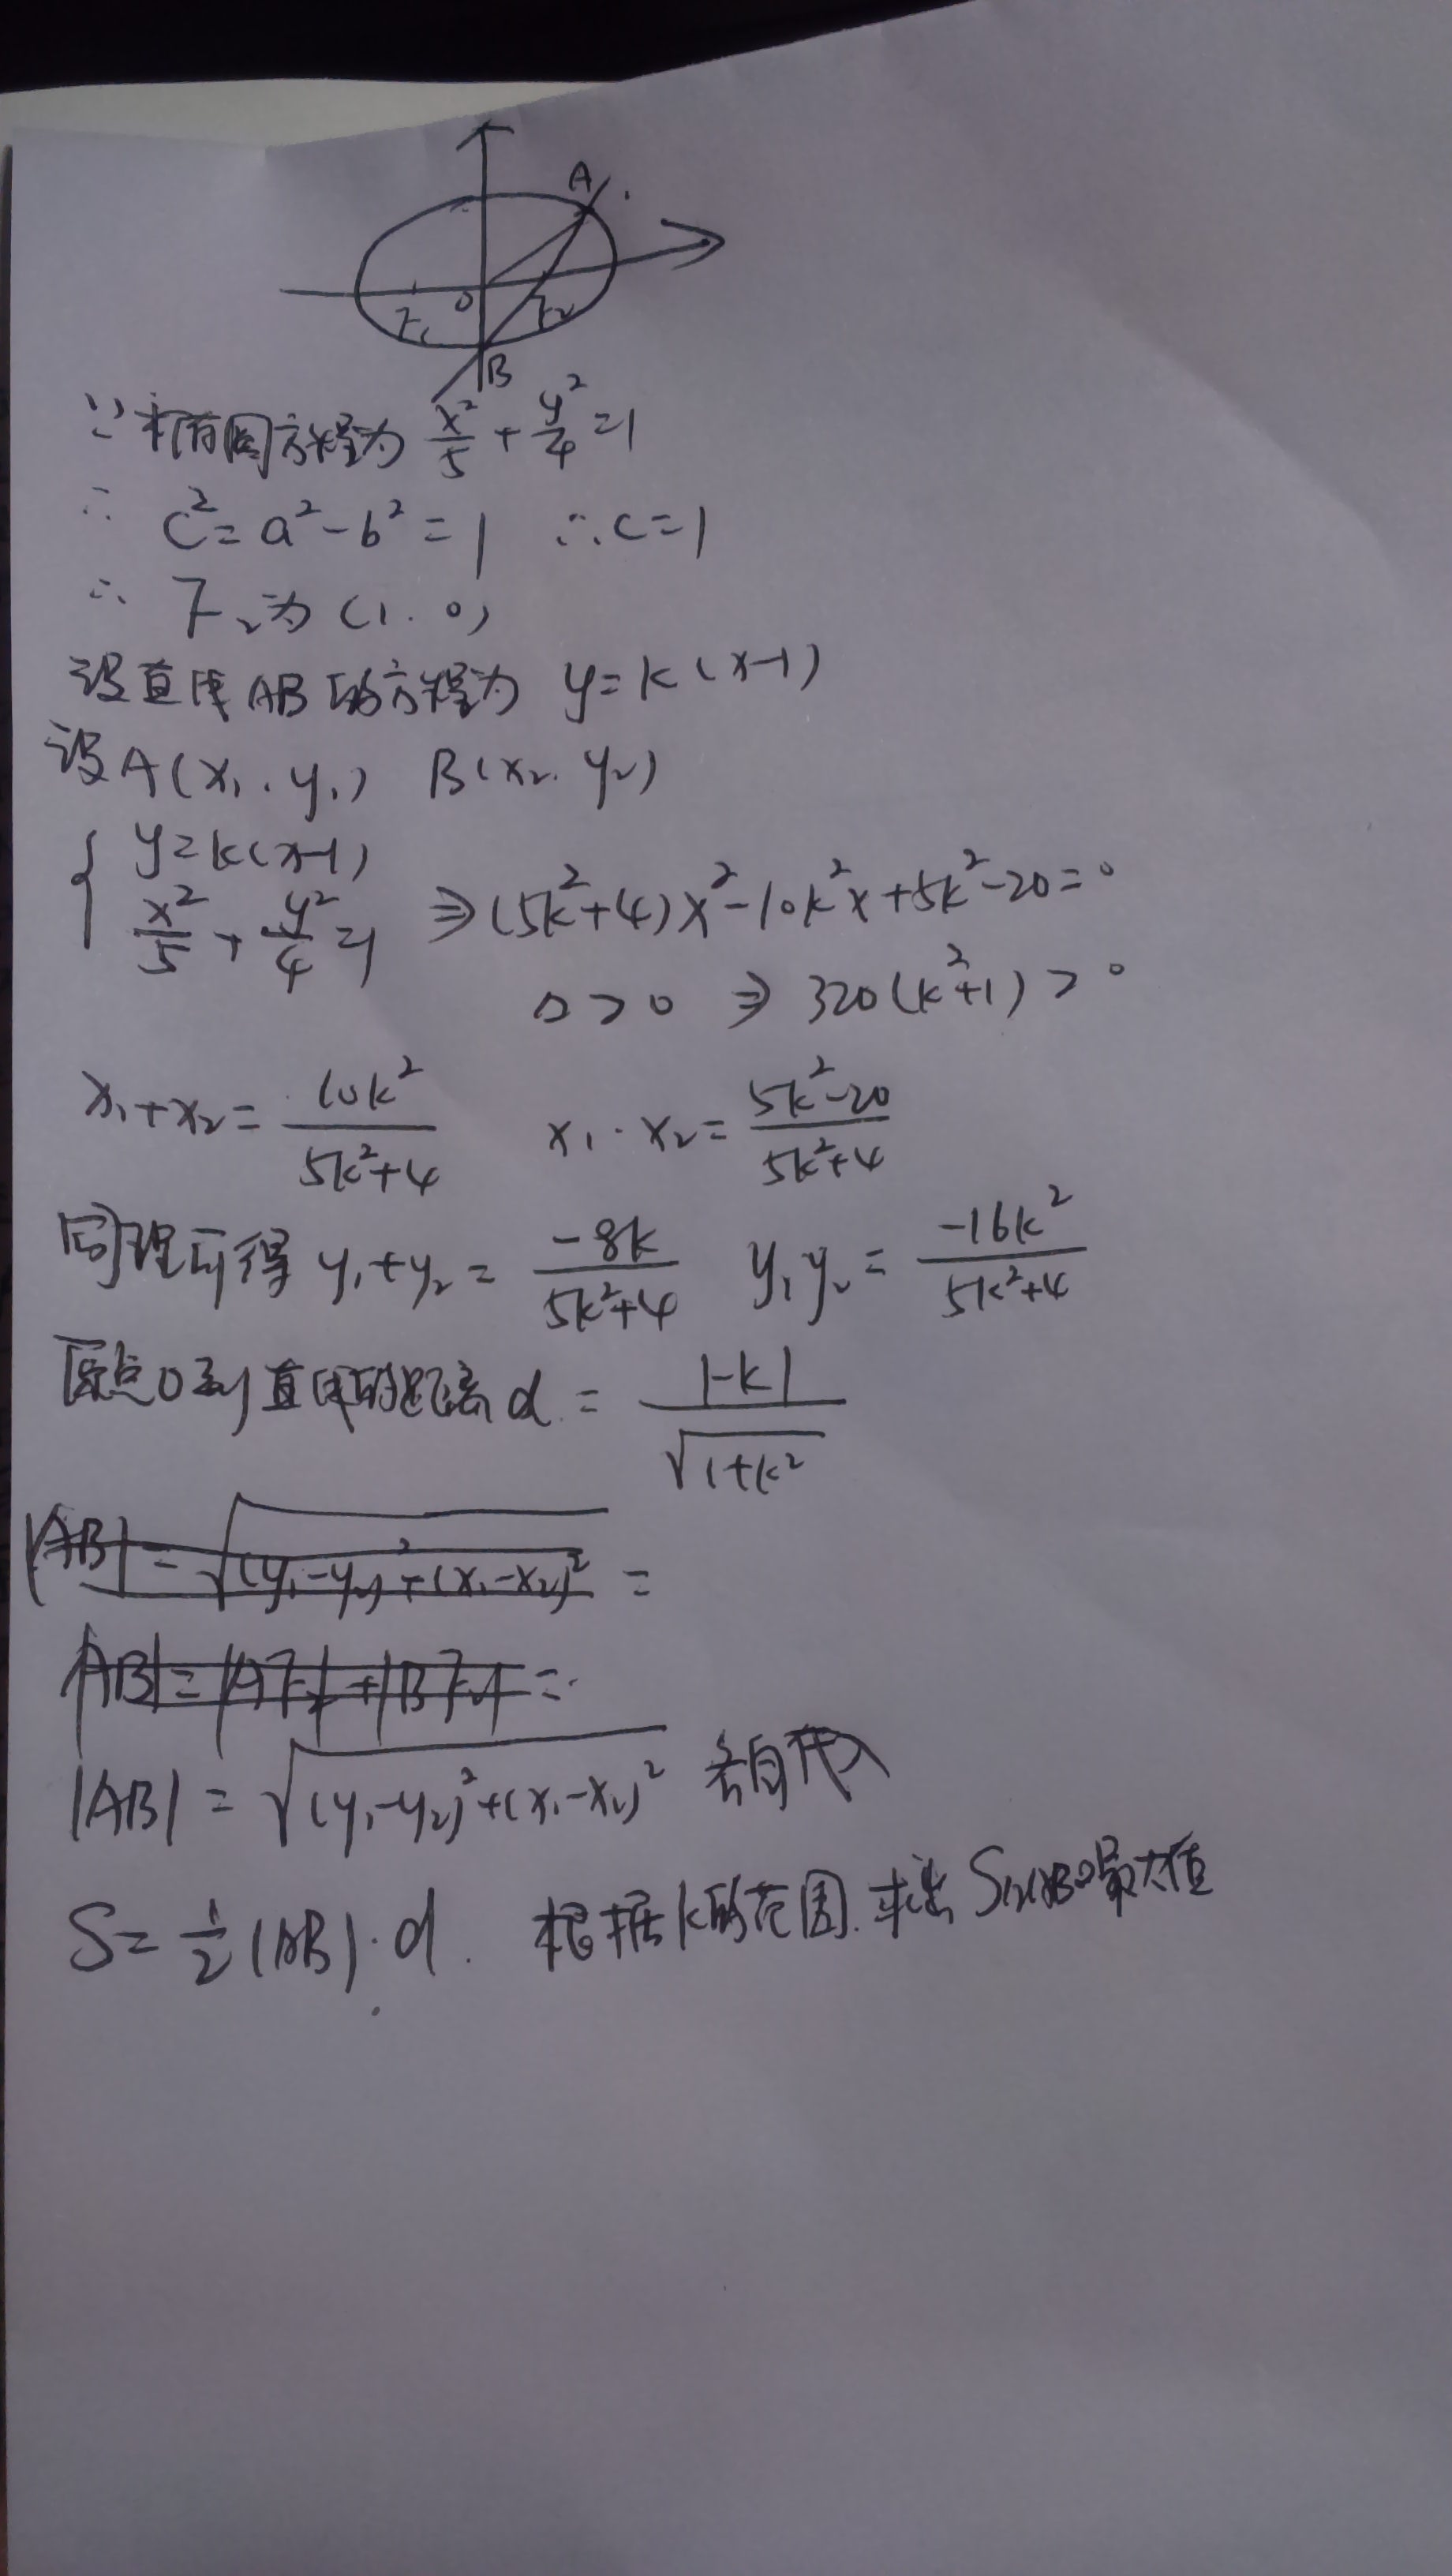 A
O
F₁ F₂
B
∵ 椭圆方程为 x²/5 + y²/4 = 1
∴ c² = a² - b² = 1 ∴ c = 1
∴ F₂为 (1. 0)
设直线AB的方程为 y = k(x-1)
设A(x₁. y₁) B(x₂. y₂)
{ y = k(x-1)
x²/5 + y²/4 = 1 ⇒ (5k²+4)x² - 10k²x + 5k² - 20 = 0
△ > 0 ⇒ 320(k²+1) > 0
x₁+x₂ = 10k²/(5k²+4) x₁·x₂ = (5k²-20)/(5k²+4)
同理可得 y₁+y₂ = -8k/(5k²+4) y₁y₂ = -16k²/(5k²+4)
原点O到直线的距离 d = |-k|/√(1+k²)
|AB| = √((y₁-y₂)²+(x₁-x₂)²) =
|AB| = |AF₂|+|BF₂| =
|AB| = √((y₁-y₂)²+(x₁-x₂)²) 各自代入
S = ½|AB|·d. 根据k的范围. 求出 S△ABO最大值